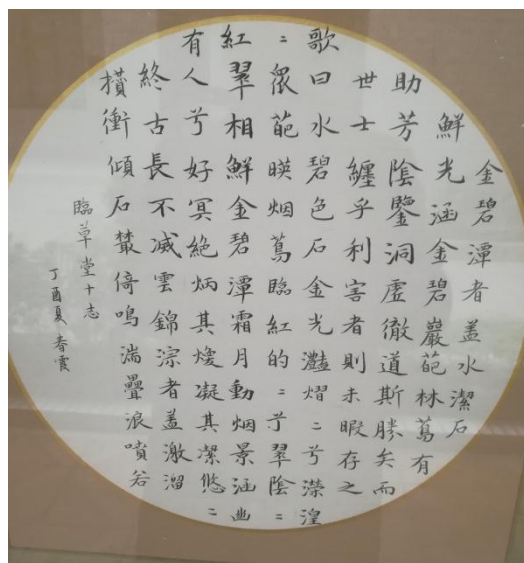 金碧潭者蓋水潔石
鮮光涵金碧巖葩林蔦有
助芳陰鑒洞虛徹道斯勝矣而
世士纏乎利害者則未暇存之
歌曰水碧色石金光灩熠〻兮濚湟
〻眾葩暎烟蔦臨紅的〻兮翠陰〻
紅翠相鮮金碧潭霜月動烟景涵幽
有人兮好冥絕炳其煥凝其潔悠〻
終古長不滅雲錦淙者蓋激溜
攢衝傾石叢倚鳴湍疊浪噴若
臨草堂十志
丁酉夏 春霞